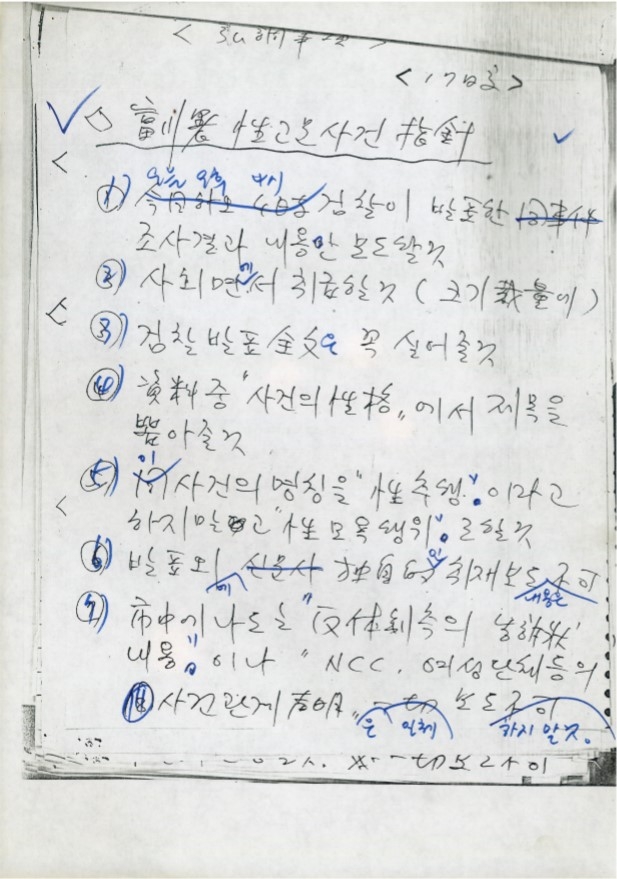 <17日字>
◇ 富川署 性고문사건 指針
오늘 오후 4시
① 今日하오 4時 검찰이 발표한 同事件
조사결과 내용만 보도할것
② 사회면에서 취급할것 (크기 裁量에)
③ 검찰 발표 全文은 꼭 실어줄것
④ 資料중 "사건의 性格"에서 제목을
뽑아줄것
⑤ 이 사건의 명칭을 "性추행"이라고
하지말고 "性모욕행위"로할것
⑥ 발표외에 신문사 独自的인 취재보도 내용은 不可
⑦ 市中에 나도는 "反体制측의 告訴状
내용"이나 "NCC, 여성단체등의
사건관계 声明"은 일체 一切 보도不可 하지 말것.